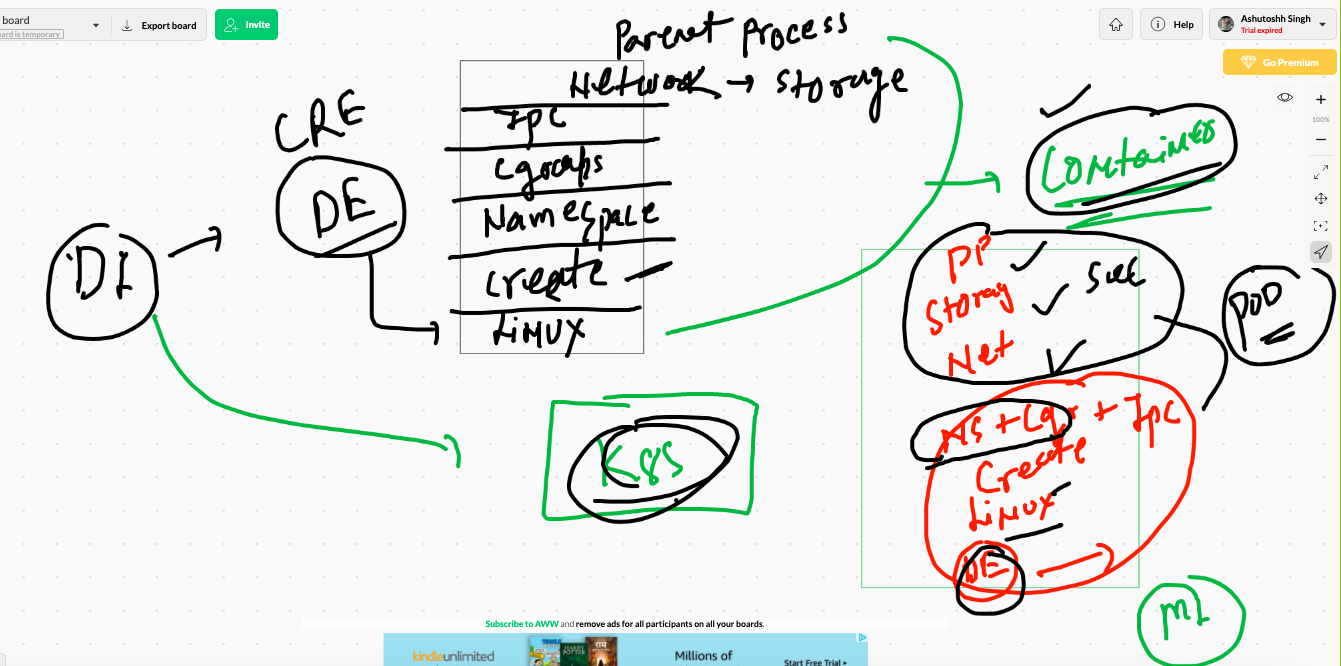 board
Export board
Invite
Help
Ashutoshh Singh
Trial expired
board is temporary
Go Premium
100%
Parenet Process
Network → Storage
IPC
Cgroups
Namespace
Create
LiNUX
CRE
DE
DI
Container
PP
Storag
Net
POD
NS + Cgr + Ipc
Create
LiNUX
DE
K8S
MI
Subscribe to AWW and remove ads for all participants on all your boards.
kindleunlimited
HARRY POTTER
Millions of
Start Free Trial